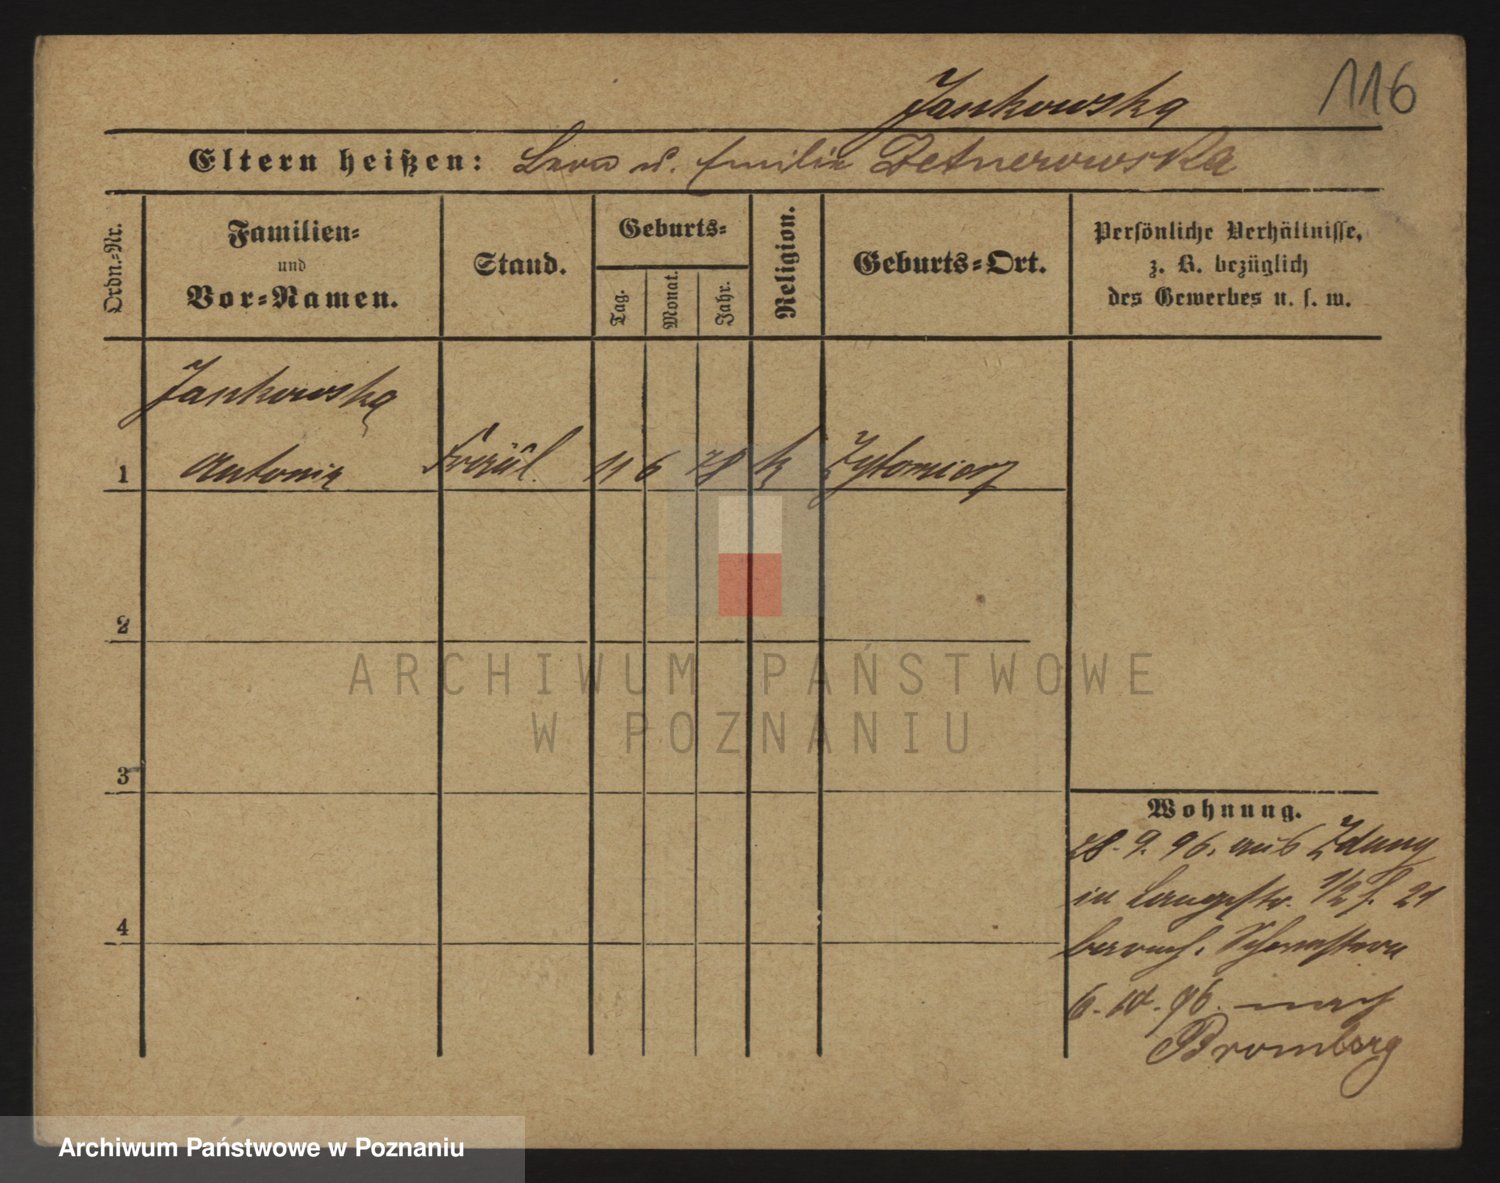 116
Jankowska
Eltern heißen: Leon u. Emilie Detnerowska
Ordn.-Nr.
Familien-
und
Vor-Namen.
Stand.
Geburts-
Tag.
Monat.
Jahr.
Religion.
Geburts-Ort.
Persönliche Verhältnisse,
z. B. bezüglich
des Gewerbes u. s. w.
Jankowska
1 Antonie Fräul. 11 6 78 k Zytomierz
2
3
4
Wohnung.
28. 9. 96. aus Zduny
in Langestr. 1/2 b. 21
6. 10. 96. nach
Bromberg
ARCHIWUM PAŃSTWOWE
W POZNANIU
Archiwum Państwowe w Poznaniu